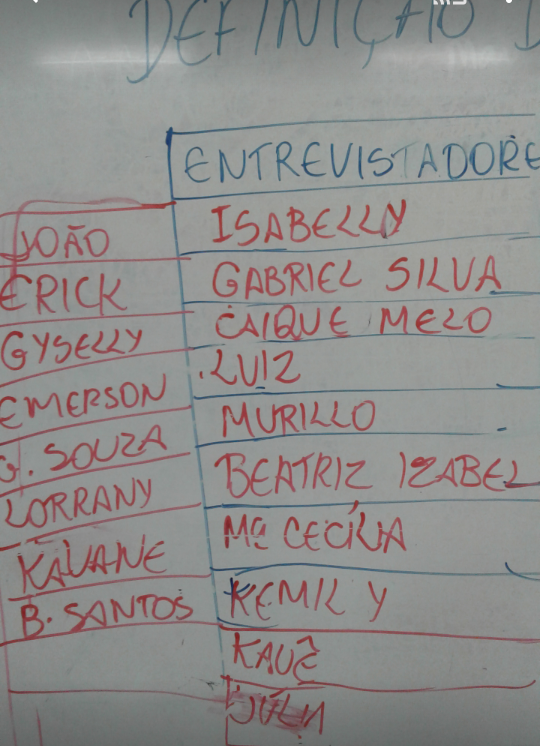 DEFINIÇÃO D
ENTREVISTADORE
JOÃO
ERICK
GYSELLY
EMERSON
G. SOUZA
LORRANY
KAUANE
B. SANTOS
ISABELLY
GABRIEL SILVA
CAIQUE MELO
LUIZ
MURILLO
BEATRIZ IZABEL
Mª CECÍLIA
KEMILY
KAUÊ